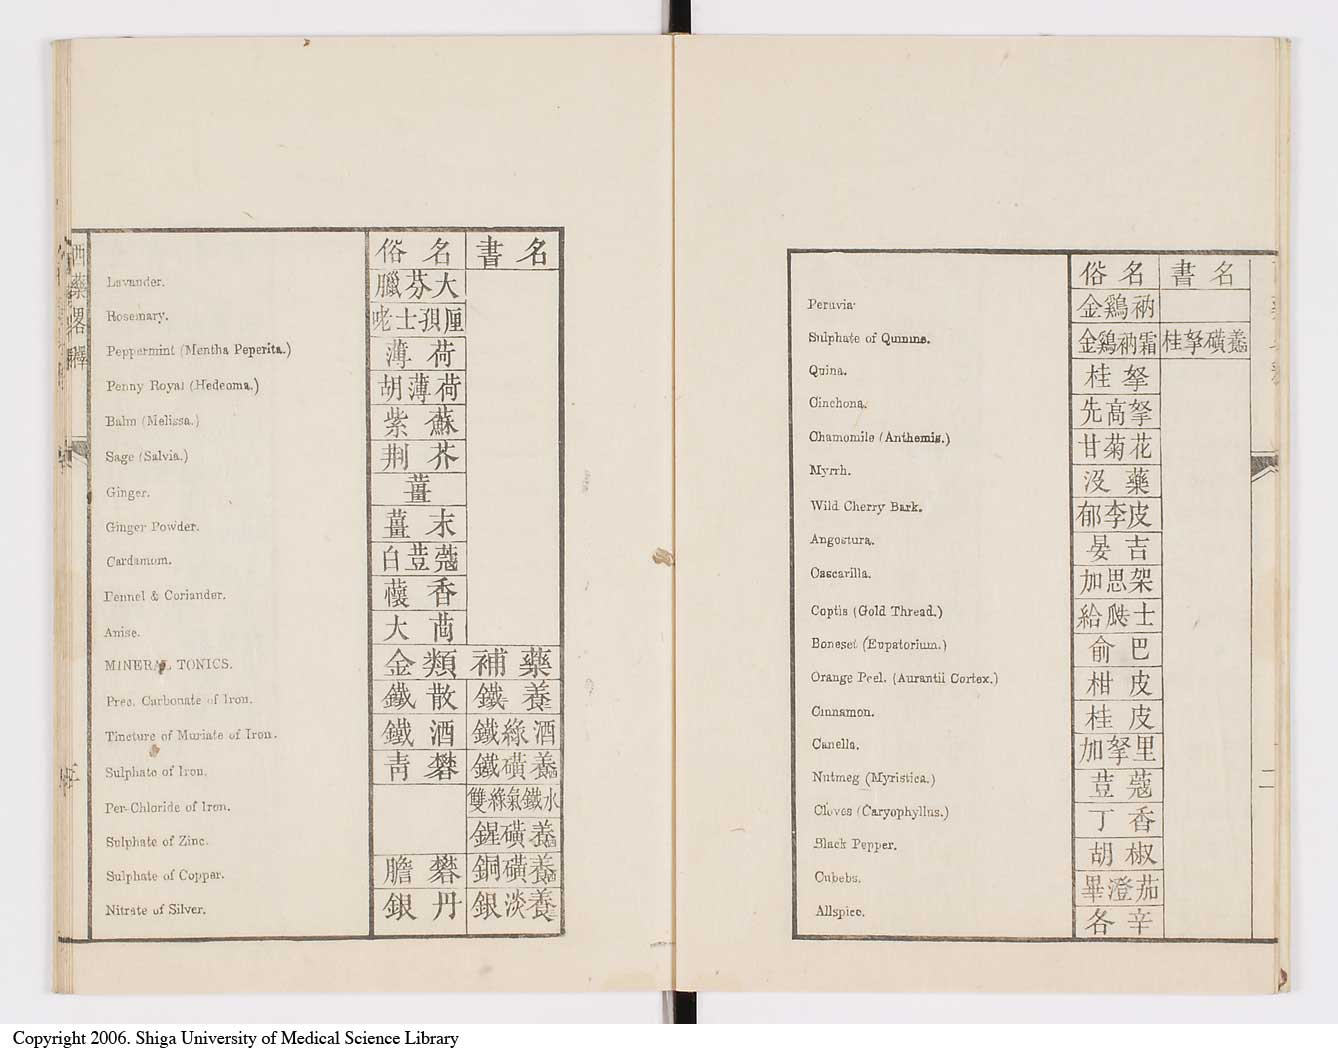 名俗 名書
Peruvia 金鷄衲
Sulphate of Quinine. 金鷄衲霜 桂拏磺養
Quina. 桂拏
Cinchona. 先高拏
Chamomile (Anthemis.) 甘菊花
Myrrh. 沒藥
Wild Cherry Bark. 郁李皮
Angostura. 晏吉
Cascarilla. 加思架
Coptis (Gold Thread.)
Boneset (Eupatorium.) 俞巴
Orange Peel. (Aurantii Cortex.) 柑皮
Cinnamon. 桂皮
Canella. 加拏里
Nutmeg (Myristica.) 荳蔻
Cloves (Caryophyllus.) 丁香
Black Pepper. 胡椒
Cubebs. 畢澄茄
Allspice. 各辛
二
西藥畧釋
俗名 書名
Lavander. 臘芬大
Rosemary.
Peppermint (Mentha Peperita.) 薄荷
Penny Royal (Hedeoma.) 胡薄荷
Balm (Melissa.) 紫蘇
Sage (Salvia.) 荆芥
Ginger. 薑
Ginger Powder. 薑末
Cardamom. 白荳蔻
Fennel & Coriander. 蘹香
Anise. 大茴
MINERAL TONICS. 金類補藥
Prec. Carbonate of Iron. 鐵散 鐵養
Tincture of Muriate of Iron. 鐵酒 鐵綠酒
Sulphate of Iron. 靑礬 鐵磺養
Per-Chloride of Iron. 雙綠氣鐵水
Sulphate of Zinc. 鋅磺養
Sulphate of Copper. 膽礬 銅磺養
Nitrate of Silver. 銀丹 銀淡養
三
Copyright 2006. Shiga University of Medical Science Library